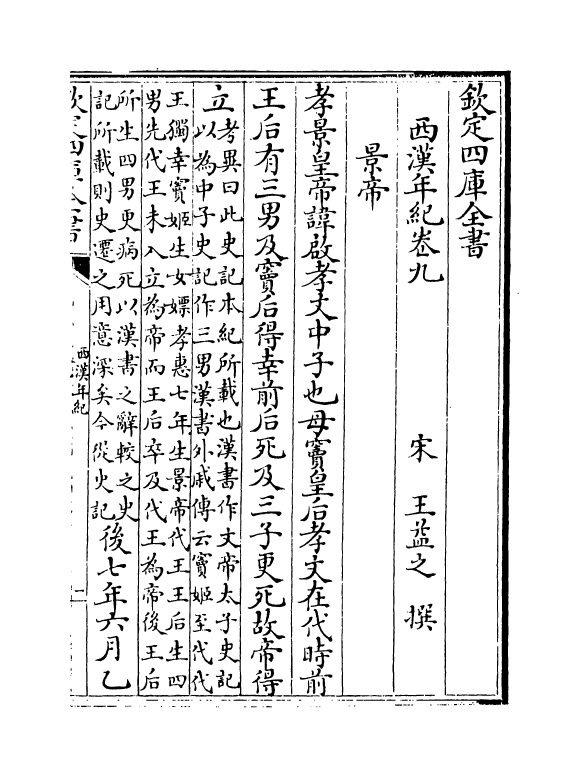 欽定四庫全書
西漢年紀卷九 宋 王益之 撰
景帝
孝景皇帝諱啟孝文中子也母竇皇后孝文在代時前
王后有三男及竇后得幸前后死及三子更死故帝得
立
考異曰此史記本紀所載也漢書作文帝太子史記
以為中子史記作三男漢書外戚傳云竇姬至代代
王獨幸竇姬生女嫖孝惠七年生景帝代王王后生四
男先代王未入立為帝而王后卒及代王為帝後王后
所生四男更病死以漢書之辭較之史
記所載則史遷之用意深矣今從史記
後七年六月乙
欽定四庫全書
西漢年紀